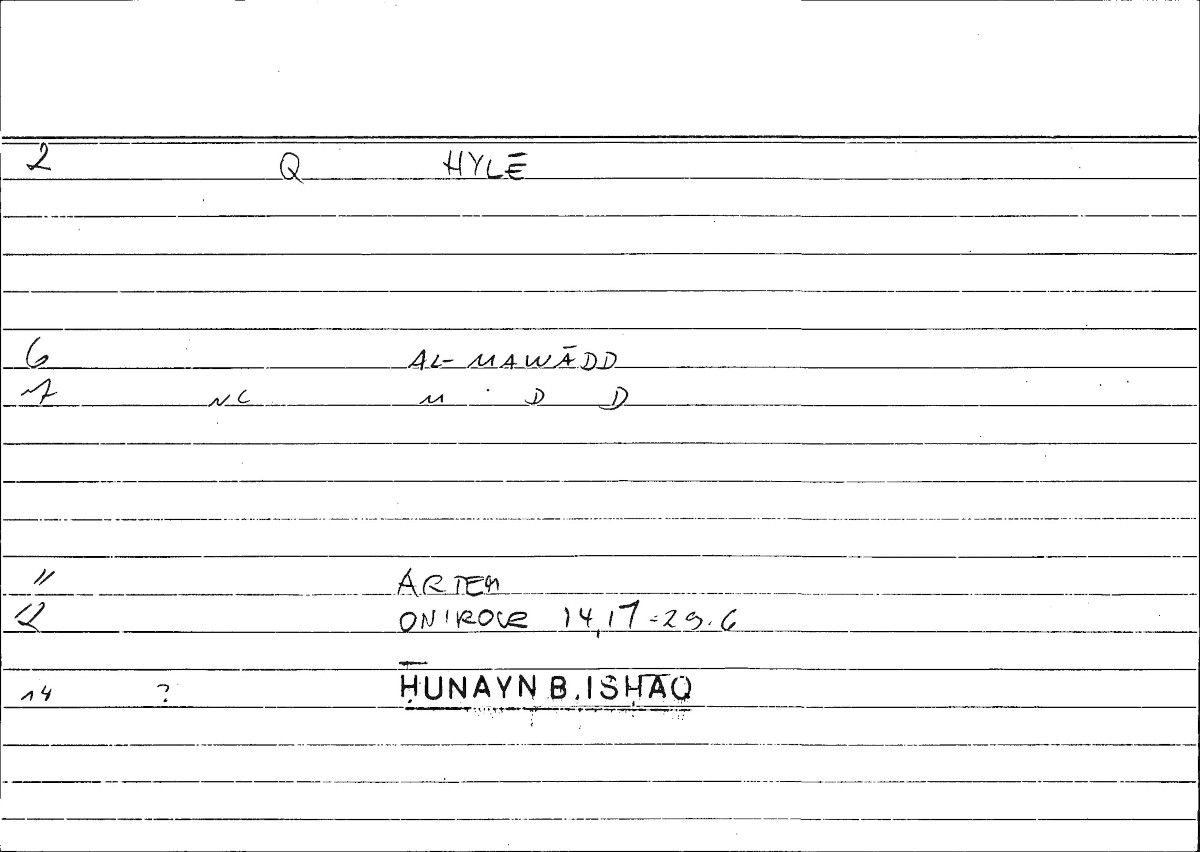 2 Q HYLĒ
6 AL-MAWĀDD
7 NC M D D
11 ARTEM
12 ONIROCR 14,17=29.6
14 ? ḤUNAYN B. ISḤĀQ